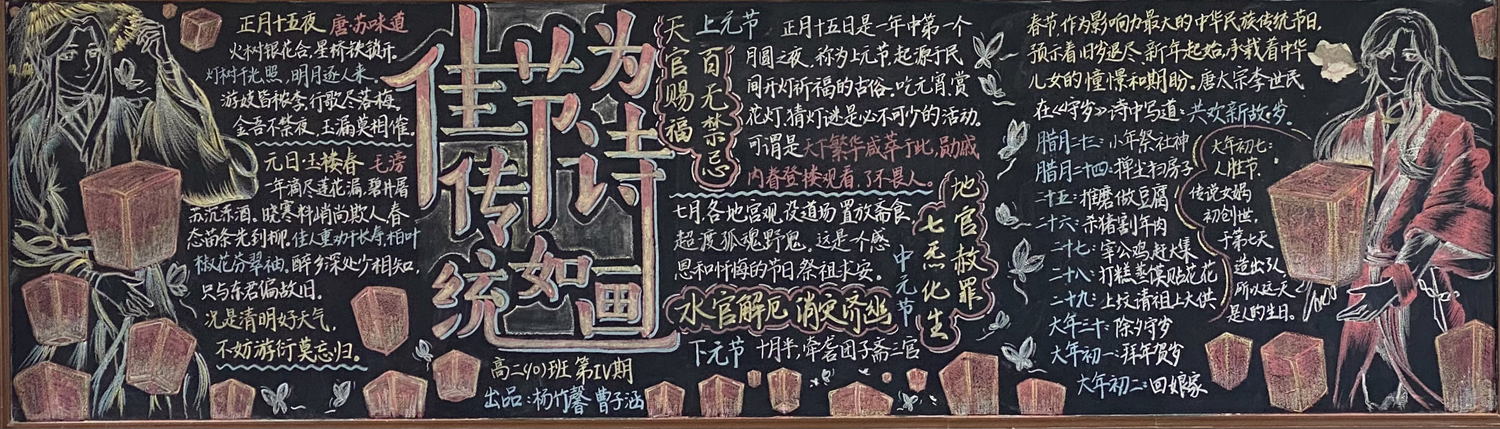 正月十五夜 唐·苏味道
火树银花合,星桥铁锁开。
灯树千光照,明月逐人来。
游妓皆秾李,行歌尽落梅。
金吾不禁夜,玉漏莫相催。
元日·玉楼春 毛滂
一年滴尽莲花漏,碧井屠
苏沉冻酒。晓寒料峭尚欺人,春
态苗条先到柳。佳人重劝千长寿,柏叶
椒花芬翠袖。醉乡深处少相知,
只与东君偏故旧。
况是清明好天气,
不妨游衍莫忘归。
佳节为诗
传统如画
高二(10)班 第IV期
出品:杨竹馨 曹子涵
天官赐福
百无禁忌
上元节 正月十五日是一年中第一个
月圆之夜,称为上元节,起源于民
间开灯祈福的古俗。吃元宵,赏
花灯,猜灯谜是必不可少的活动。
可谓是天下繁华咸萃于此,勋戚
内眷登楼观看,了不畏人。
七月,各地宫观设道场置放斋食
超度孤魂野鬼。这是个感
恩和忏悔的节日祭祖求安。
中元节
地官赦罪
七炁化生
水官解厄 消灾济幽
下元节 十月半,牵砻团子斋三官
春节,作为影响力最大的中华民族传统节日,
预示着旧岁退尽,新年起始,承载着中华
儿女的憧憬和期盼。唐太宗李世民
在《守岁》诗中写道:共欢新故岁。
腊月二十三:小年祭社神
腊月二十四:掸尘扫房子
二十五:推磨做豆腐
二十六:杀猪割年肉
二十七:宰公鸡赶大集
二十八:打糕蒸馍贴花花
二十九:上坟请祖上大供
大年三十:除夕守岁
大年初一:拜年贺岁
大年初二:回娘家
大年初七:
人胜节,
传说女娲
初创世,
于第七天
造出了人
所以这一天
是人的生日。